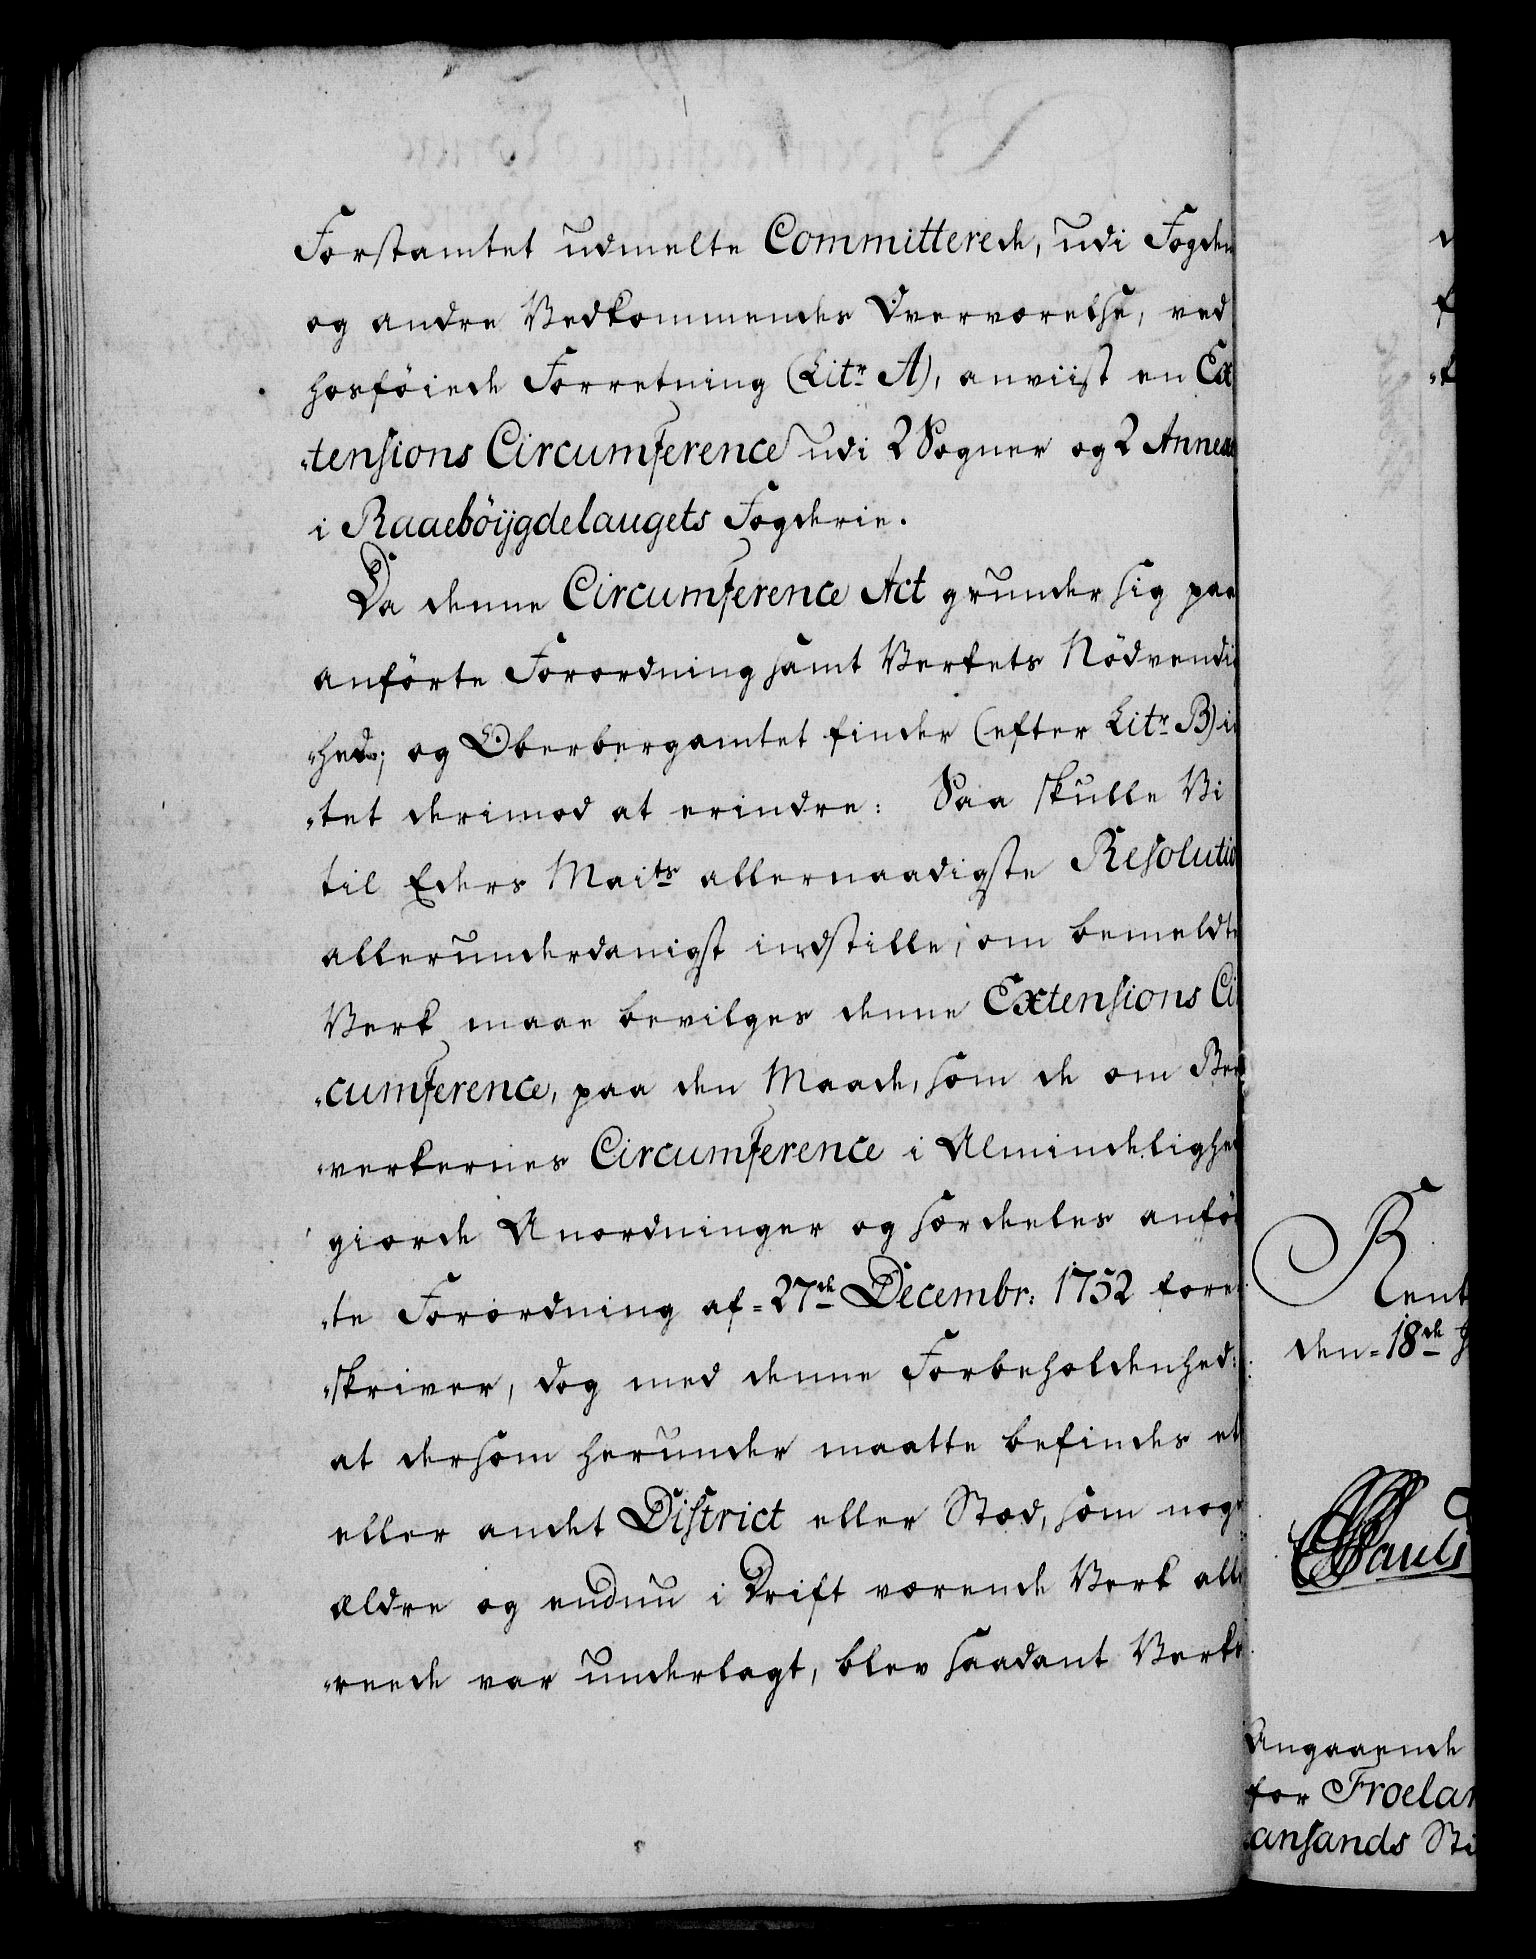 Forstamtet udmelte Committerede, udi Fogden
og andre Vedkommendes Overværelse, ved
hosföiede Forretning (Litr A), anviist en Ex
„tensions Circumference udi 2 Sogner og 2 Annex
i Raaeböijgdelaugets Fogderie.
Da denne Circumference Act grunder sig paa
anförte Forordning samt Verkets Nödvendi
„hed; og Oberbergamtet finder (efter Litr B) in
„tet derimod at erindre: Saa skulle Vi
til Eders Maits allernaadigste Resolutio
allerunderdanigst indstille, om bemeldte
Verk maae bevilges denne Extensions Ci
„cumference, paa den Maade, som de om Ber
„verkernes Circumference i Almindelighed
giorde Anordninger og særdeles anfö
„te Forordning af 27de Decembr: 1752 fore
„skriver, dog med denne Forbeholdenhed:
at dersom herunder maatte befindes et
eller andet District eller Stæd, som nog
ældre og endnu i Drift værende Verk alle
„reede var underlagt, blev saadant Verk
Rent
den 18de
Angaaende
for Froelan
ansands Sti